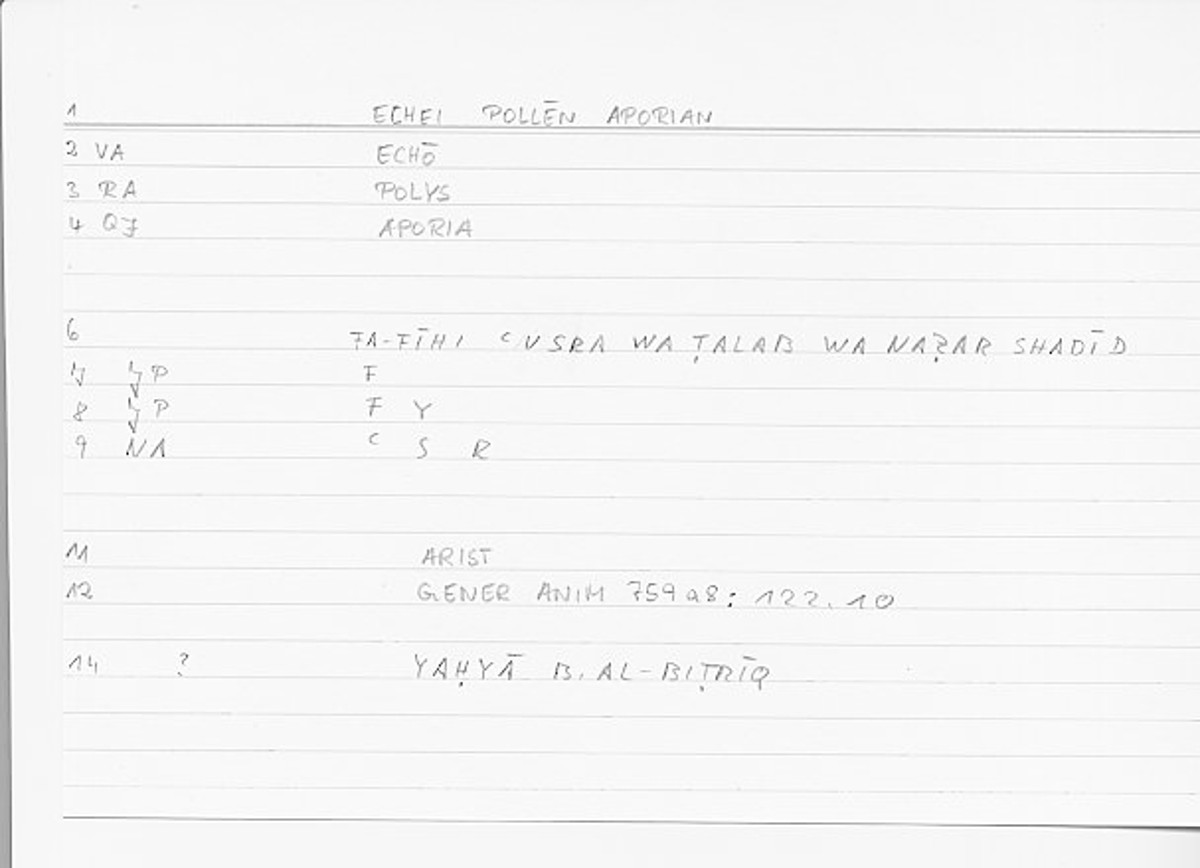 1 ECHEI POLLĒN APORIAN
2 VA ECHŌ
3 RA POLYS
4 QJ APORIA
6 FA-FĪHI ʿUSRA WA ṬALAB WA NAẒAR SHADĪD
7 P F
8 P F Y
9 NA ʿ S R
11 ARIST
12 GENER ANIM 759a8: 122.10
14 ? YAḤYĀ B. AL-BIṬRĪQ